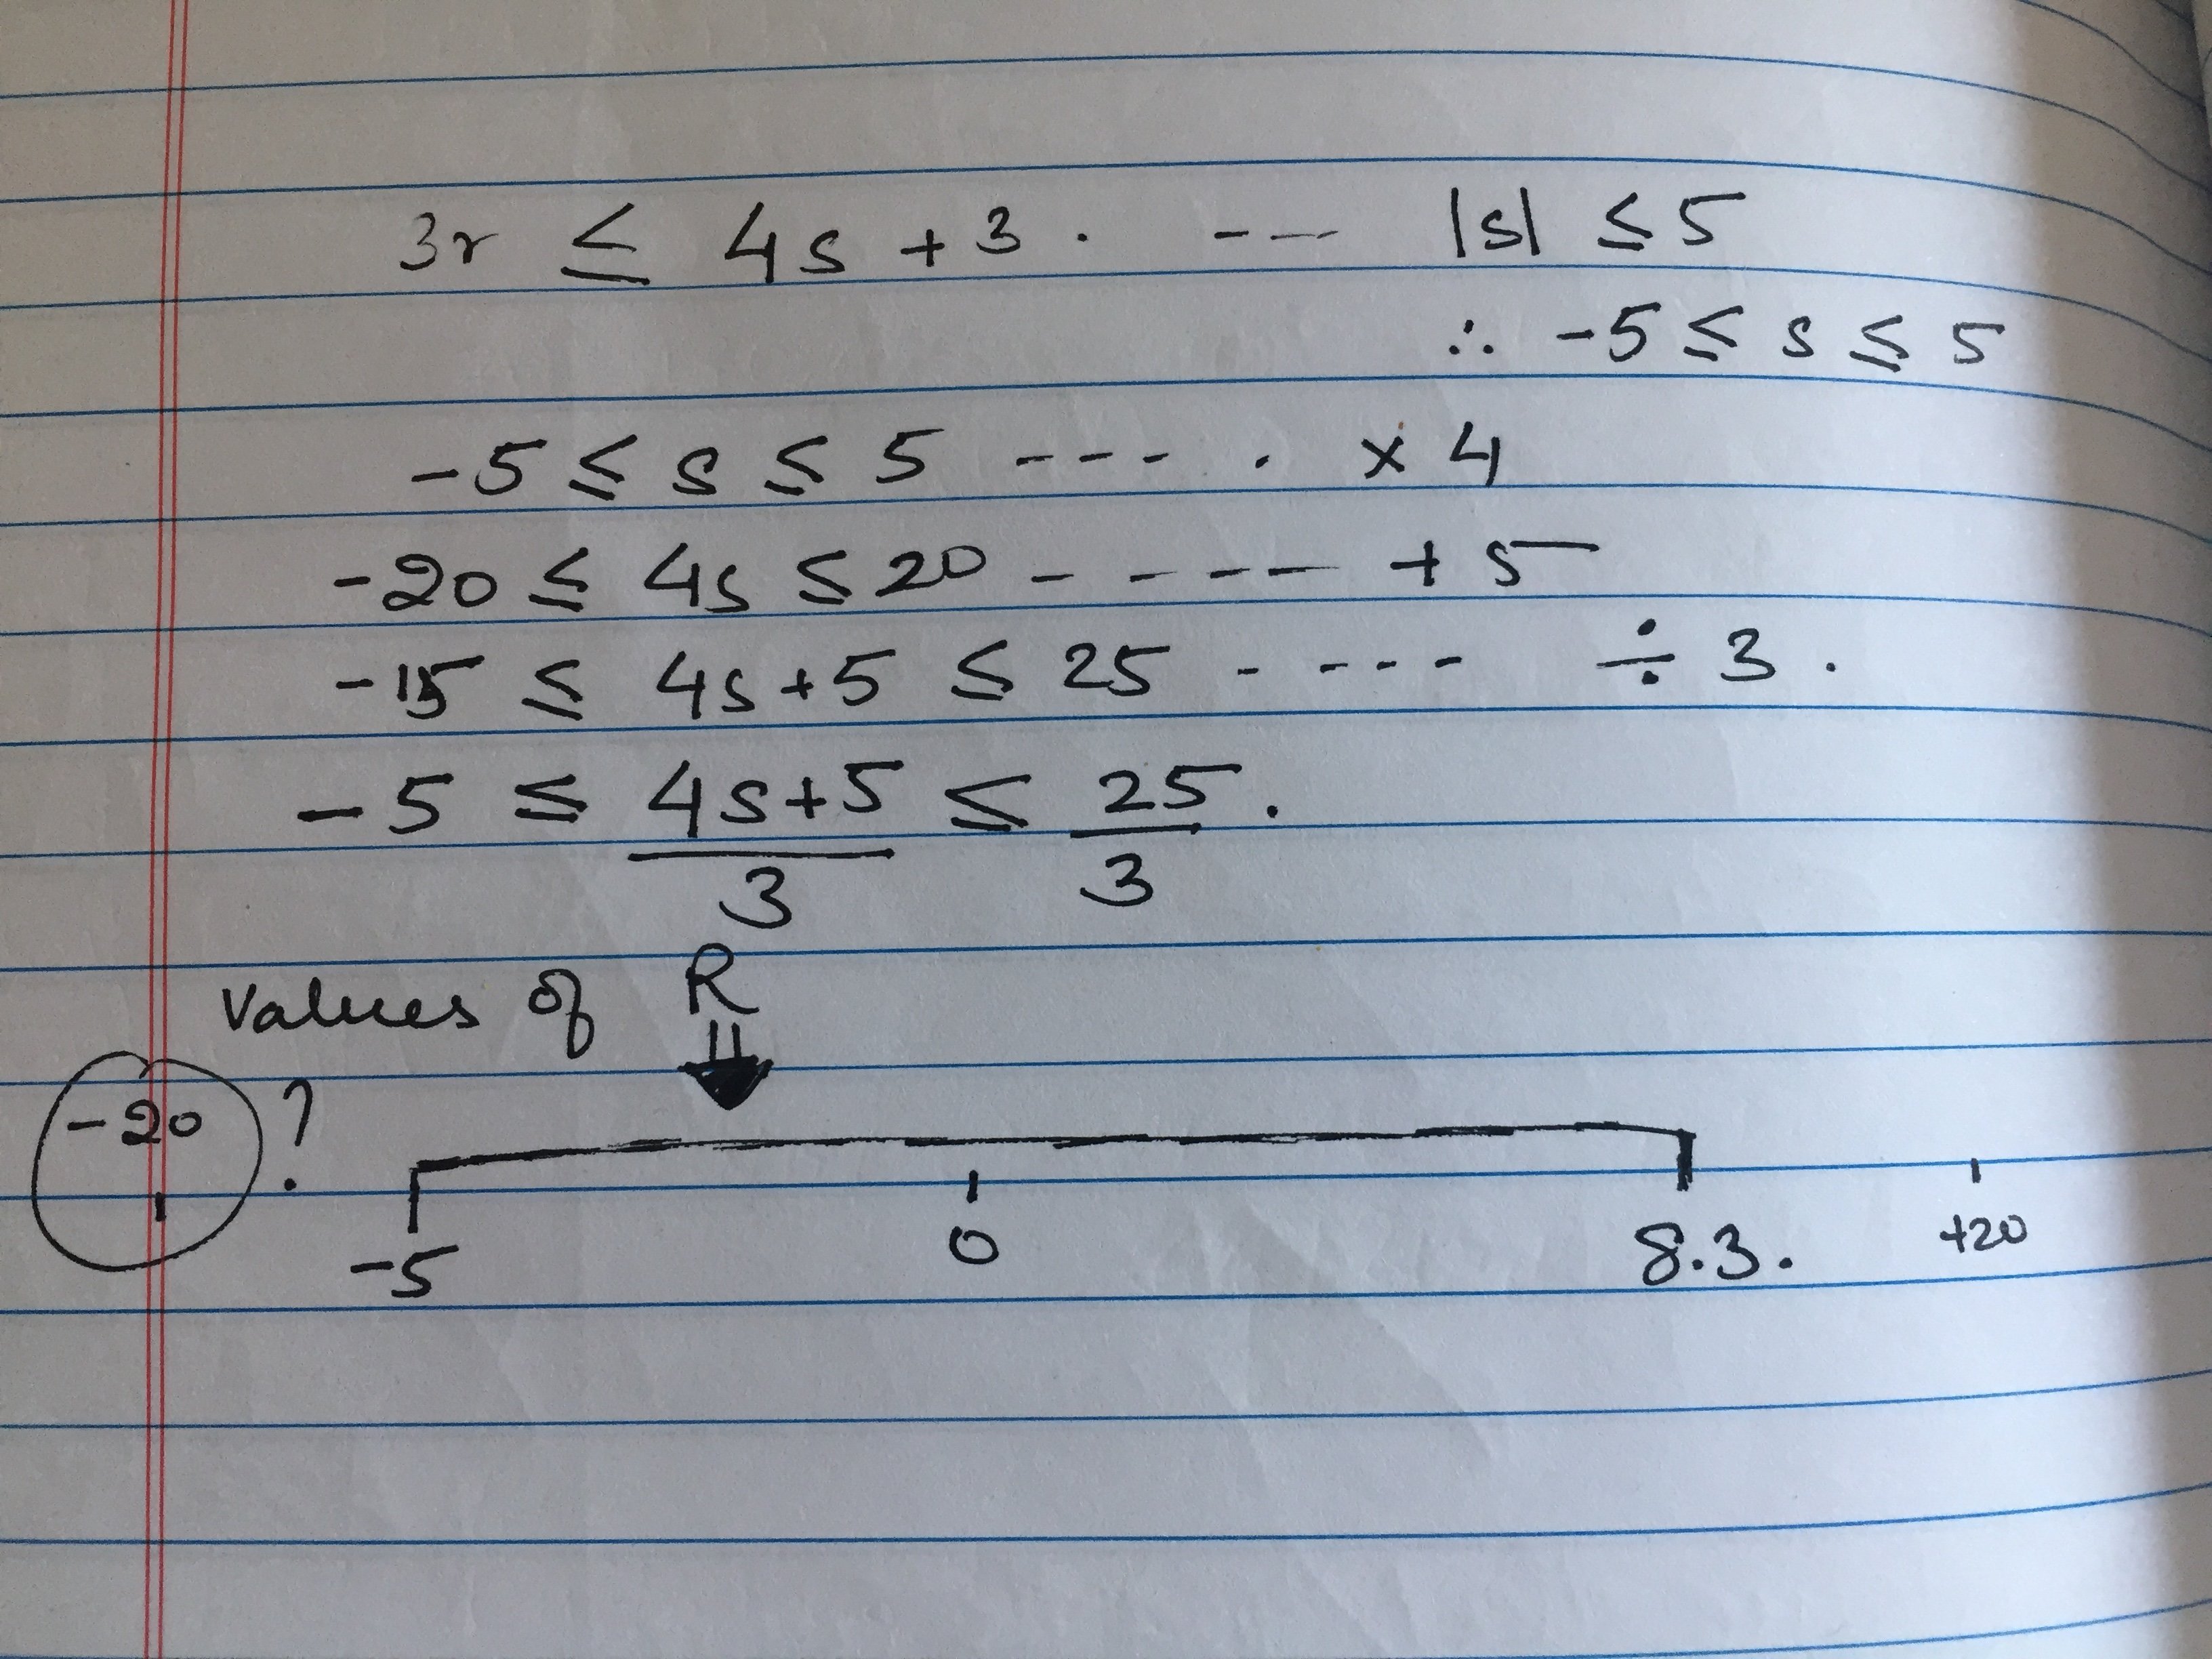 3r ≤ 4s + 3 . - - - |s| ≤ 5
∴ -5 ≤ s ≤ 5
-5 ≤ s ≤ 5 - - - . × 4
-20 ≤ 4s ≤ 20 - - - - - + 5
-15 ≤ 4s + 5 ≤ 25 - - - - ÷ 3 .
-5 ≤ (4s + 5)/3 ≤ 25/3 .
Values of R
-20 ?
-5 0 8.3. +20